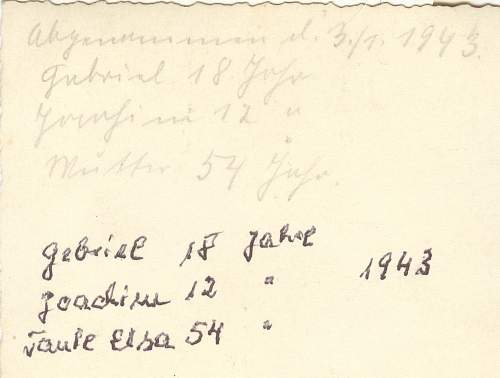 Abgenommen d. 3./1. 1943.
Gabriel 18 Jahr
Joachim 12 "
Mutter 54 Jahr.
gebriel 18 Jahre
Joachim 12 " 1943
Tante Elsa 54 "